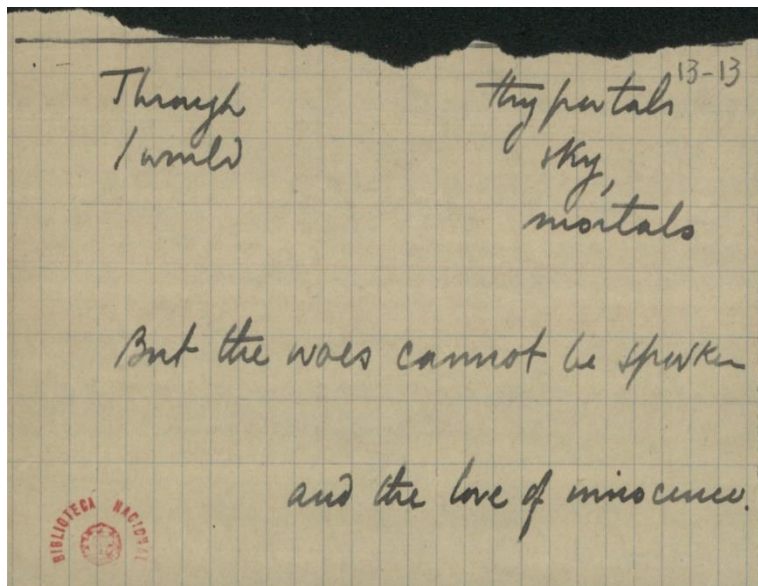 13-13
Through thy portals
I would sky,
mortals
But the woes cannot be spoken
and the love of innocence.
BIBLIOTECA NACIONAL